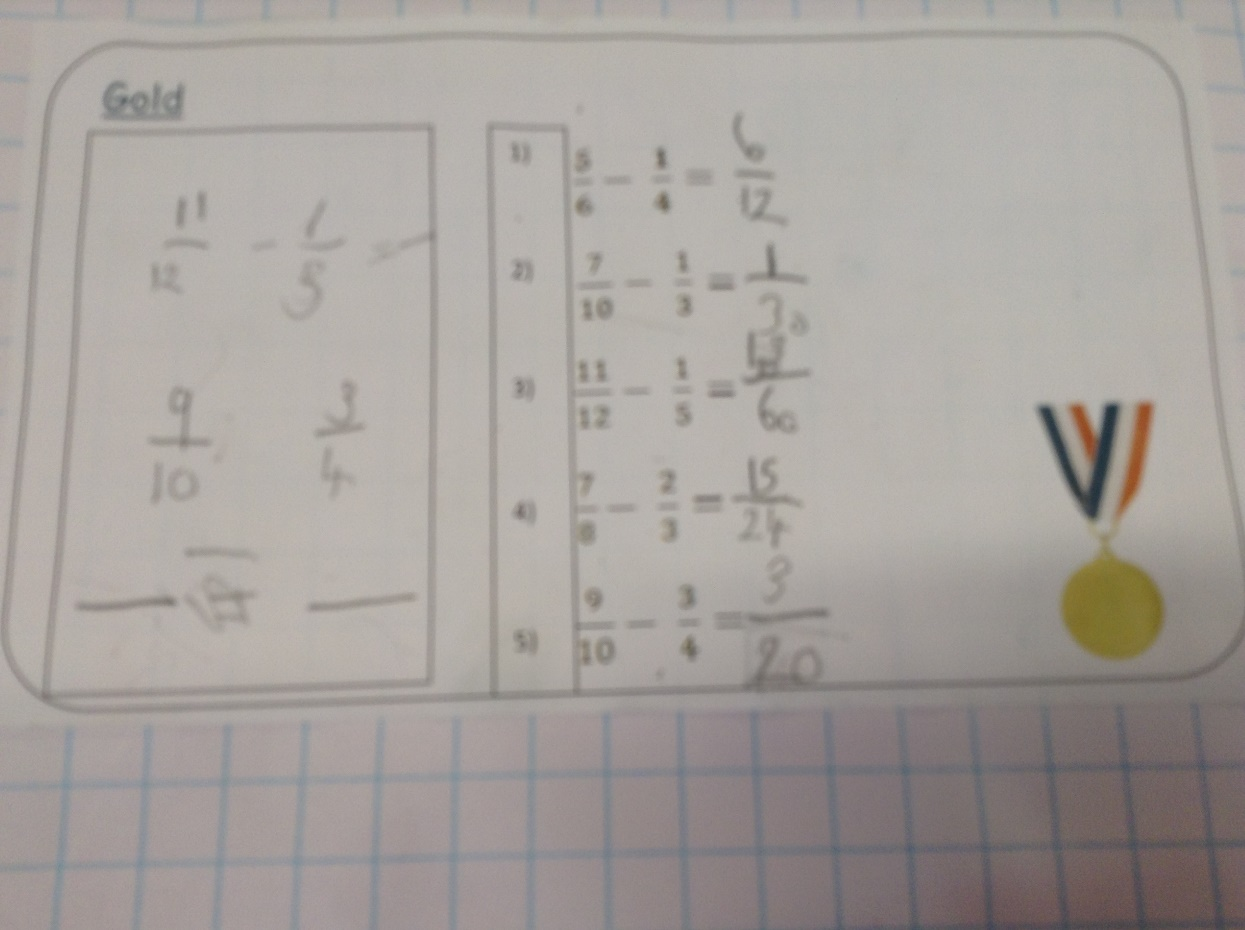 Gold
11/12 - 1/5 =
9/10 3/4
1) 5/6 - 1/4 = 6/12
2) 7/10 - 1/3 = 1/30
3) 11/12 - 1/5 = /60
4) 7/8 - 2/3 = 15/24
5) 9/10 - 3/4 = 3/20